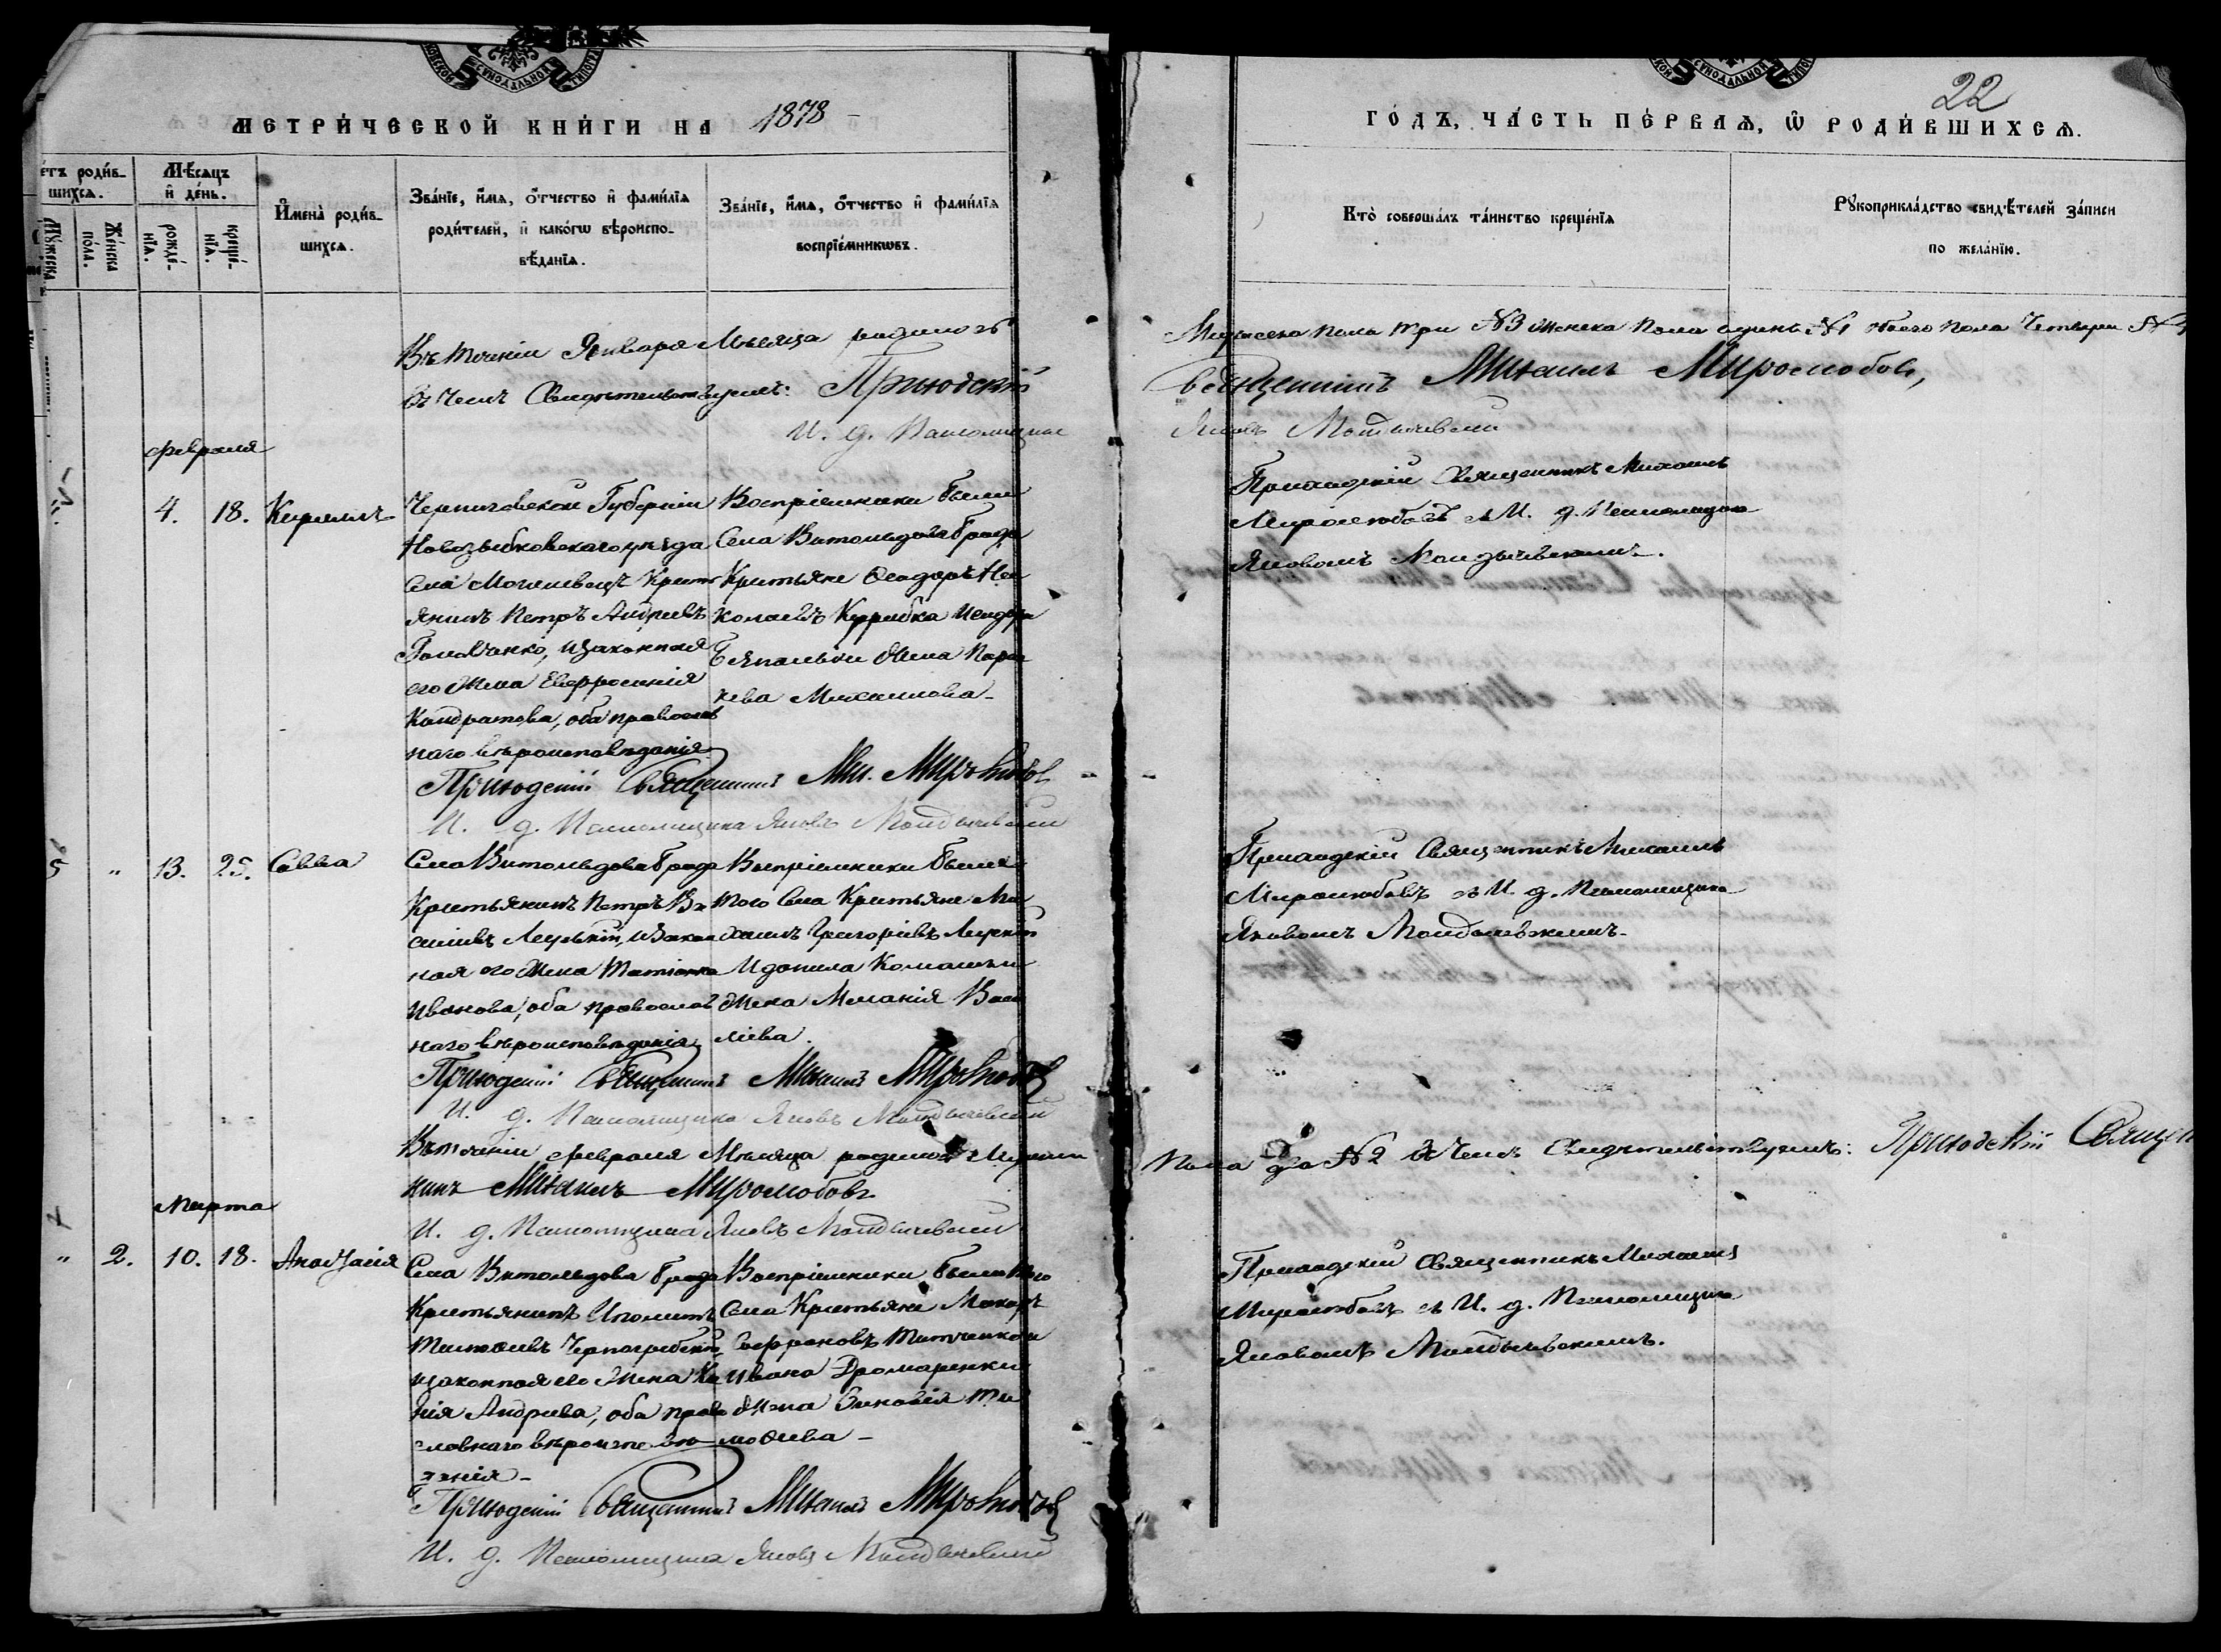 МЕТРИ́ЧЕСКОЙ КНИ́ГИ НА 1878
ГО́ДЪ, ЧА́СТЬ ПЕ́РВАѦ, Ѿ РОДИ́ВШИХСѦ.
22
е́тъ роди́в-
шихсѧ.
Мѣ́сѧцъ
и҆ де́нь.
Мꙋ́жеска
Же́нска по́ла.
рожде́-
нїѧ.
креще́-
нїѧ.
И҆мена̀ роди́в-
шихсѧ.
Зва́нїе, и҆́мѧ, ѻ҆́тчество и҆ фами́лїѧ
роди́телей, и҆ како́гѡ вѣроиспо-
вѣ́данїѧ.
Зва́нїе, и҆́мѧ, ѻ҆́тчество и҆ фами́лїѧ
воспрїе́мникѡвъ.
Кто̀ соверша́лъ та́инство креще́нїѧ
Рꙋкоприкла́дство свидѣ́телей за́писи
по жела́нїю.
Въ теченіи Января Мѣсяца родилось
Мужеска пола три №3 женска пола одинъ №1 обоего пола четыре №4
въ чемъ свидѣтельствуемъ: Приходскій
Священникъ Михаилъ Миролюбовъ,
И. д. Псаломщика
Яковъ
февраля
4. 18. Кириллъ
Черниговской Губерніи
Новозыбковскаго уѣзда
Села Крестъ
янинъ Петръ Андреевъ
изаконная
его Жена Евфросинія
Кондратова, оба православ
наго вѣроисповѣданія
Воспріемники были
Села Витольдова брода
Крестьяне Феодоръ Ни
колаевъ
жена Парас
кева Михаилова
Приходскій Священникъ Михаилъ
Миролюбовъ съ И. д. Псаломщика
Яковомъ
Приходскій Священникъ Мих. Миролюбовъ
И. д. Псаломщика Яковъ
5 " 13. 25. Савва
Села Витольдова брода
Крестьянинъ Петръ Ва
сильевъ изакон
ная его Жена Татіана
Иванова, оба православ
наго вѣроисповѣданія
Воспріемники были
того Села Крестьяне Ми
хаилъ Григоріевъ
Иданила
Жена Меланія Васи
лiева.
Приходскій Священникъ Михаилъ
Миролюбовъ съ И. д. Псаломщика
Яковомъ
Приходскій Священникъ Михаилъ Миролюбовъ
И. д. Псаломщика Яковъ
Въ теченіи февраля Мѣсяца родилось Мужеска
пола два №2 въ чемъ свидѣтельствуемъ: Приходскій Священ
никъ Михаилъ Миролюбовъ
И. д. Псаломщика Яковъ
Марта
" 2. 10. 18. Анастасія
Села Витольдова брода
Крестьянинъ Иполитъ
Тимофеевъ
изаконная его Жена Ксе
нія Андреева, оба право
славнаго вѣроисповѣ
данія
Воспріемники были того
Села Крестьяне Макаръ
Ивана
жена Зиновія Ти
мофеева
Приходскій Священникъ Михаилъ
Миролюбовъ съ И. д. Псаломщика
Яковомъ
Приходскій Священникъ Михаилъ Миролюбовъ
И. д. Псаломщика Яковъ